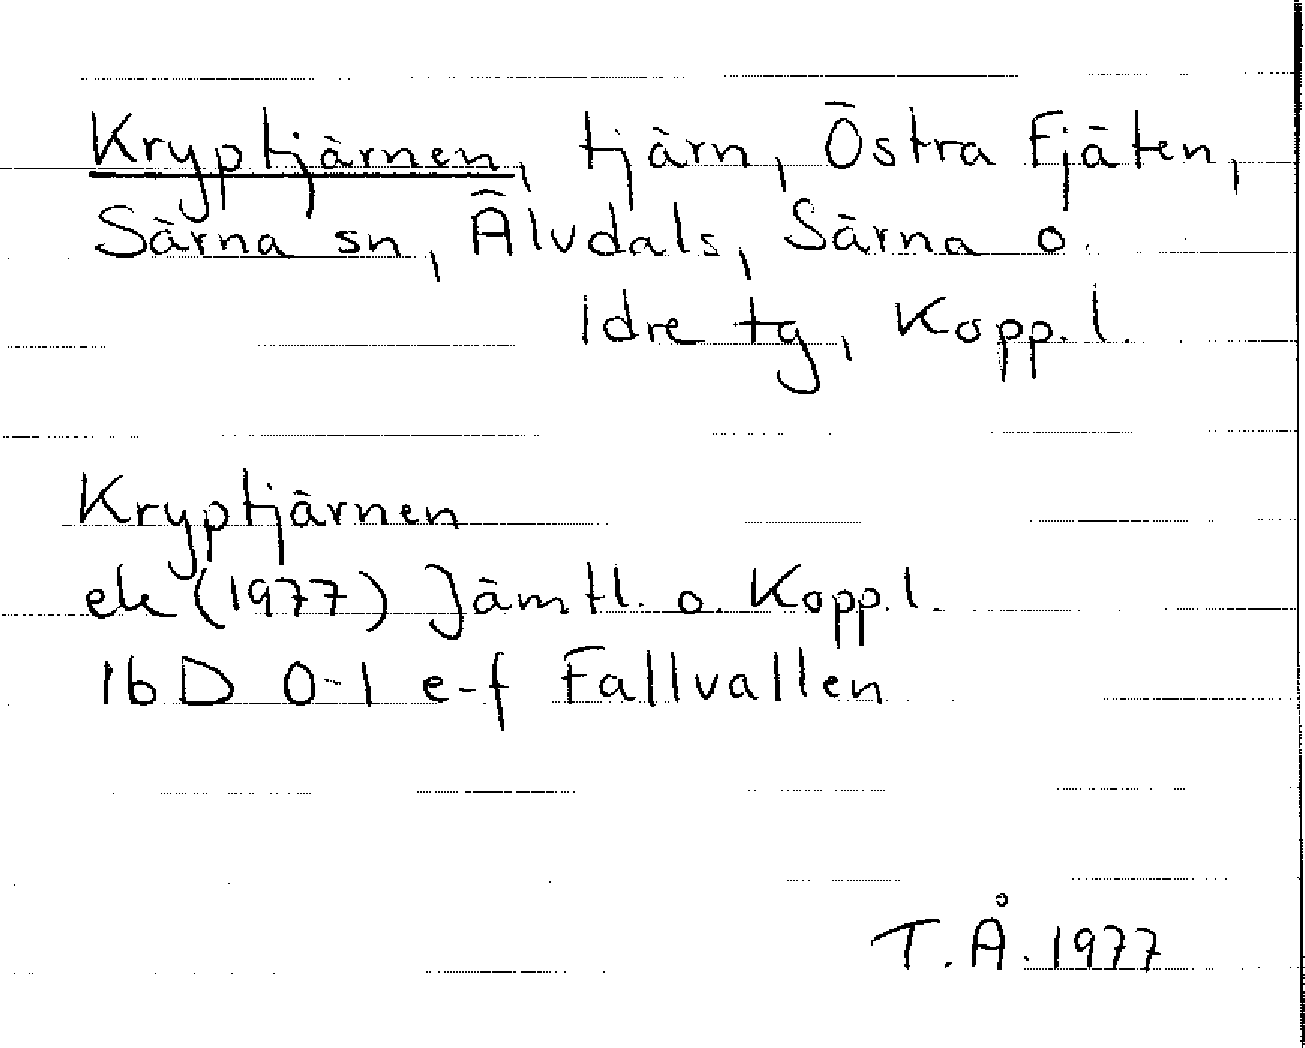 Kryptjärnen, tjärn, Östra Fjäten,
Särna sn, Älvdals, Särna o.
Idre tg, Kopp. l.
Kryptjärnen
ek (1977) Jämtl. o. Kopp. l.
16 D 0-1 e-f Fallvallen
T. Å. 1977